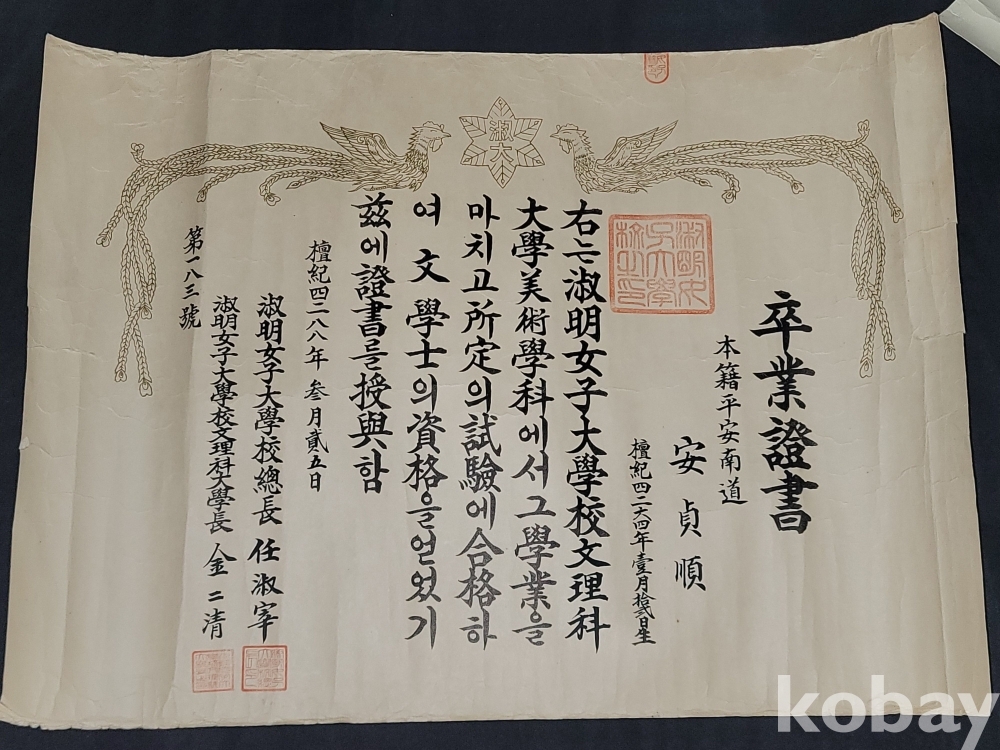 淑大
卒業證書
本籍平安南道
安貞順
檀紀四二六四年壹月拾貳日生
右는淑明女子大學校文理科
大學美術學科에서그學業을
마치고所定의試驗에合格하
여文學士의資格을얻었기
玆에證書를授與함
檀紀四二八八年叁月貳五日
淑明女子大學校總長 任淑宰
淑明女子大學校文理科大學長 金二清
第一八三號
淑明女
子大學
校之印
kobay